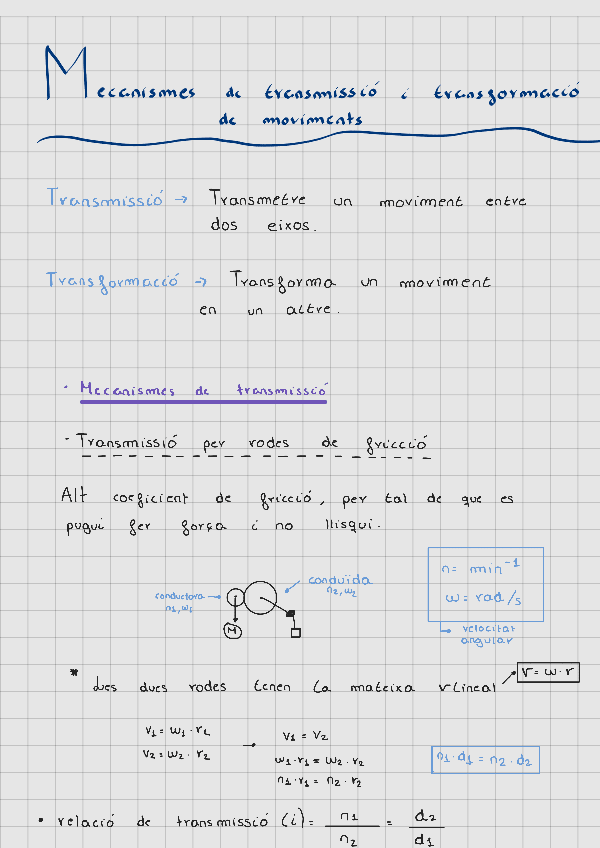 Mecanismes de transmissió i transformació
de moviments
Transmissió → Transmetre un moviment entre
dos eixos.
Transformació → Transforma un moviment
en un altre.
· Mecanismes de transmissió
· Transmissió per rodes de fricció
Alt coeficient de fricció, per tal de que es
pugui fer força i no llisqui.
conductora →
n₁, w₁
conduïda
n₂, w₂
M
n = min⁻¹
w = rad/s
velocitat
angular
* Les dues rodes tenen la mateixa v lineal
v = w · r
v₁ = w₁ · r₁
v₂ = w₂ · r₂
→
v₁ = v₂
w₁ · r₁ = w₂ · r₂
n₁ · r₁ = n₂ · r₂
n₁ · d₁ = n₂ · d₂
• relació de transmissió (i) = n₁ / n₂ = d₂ / d₁